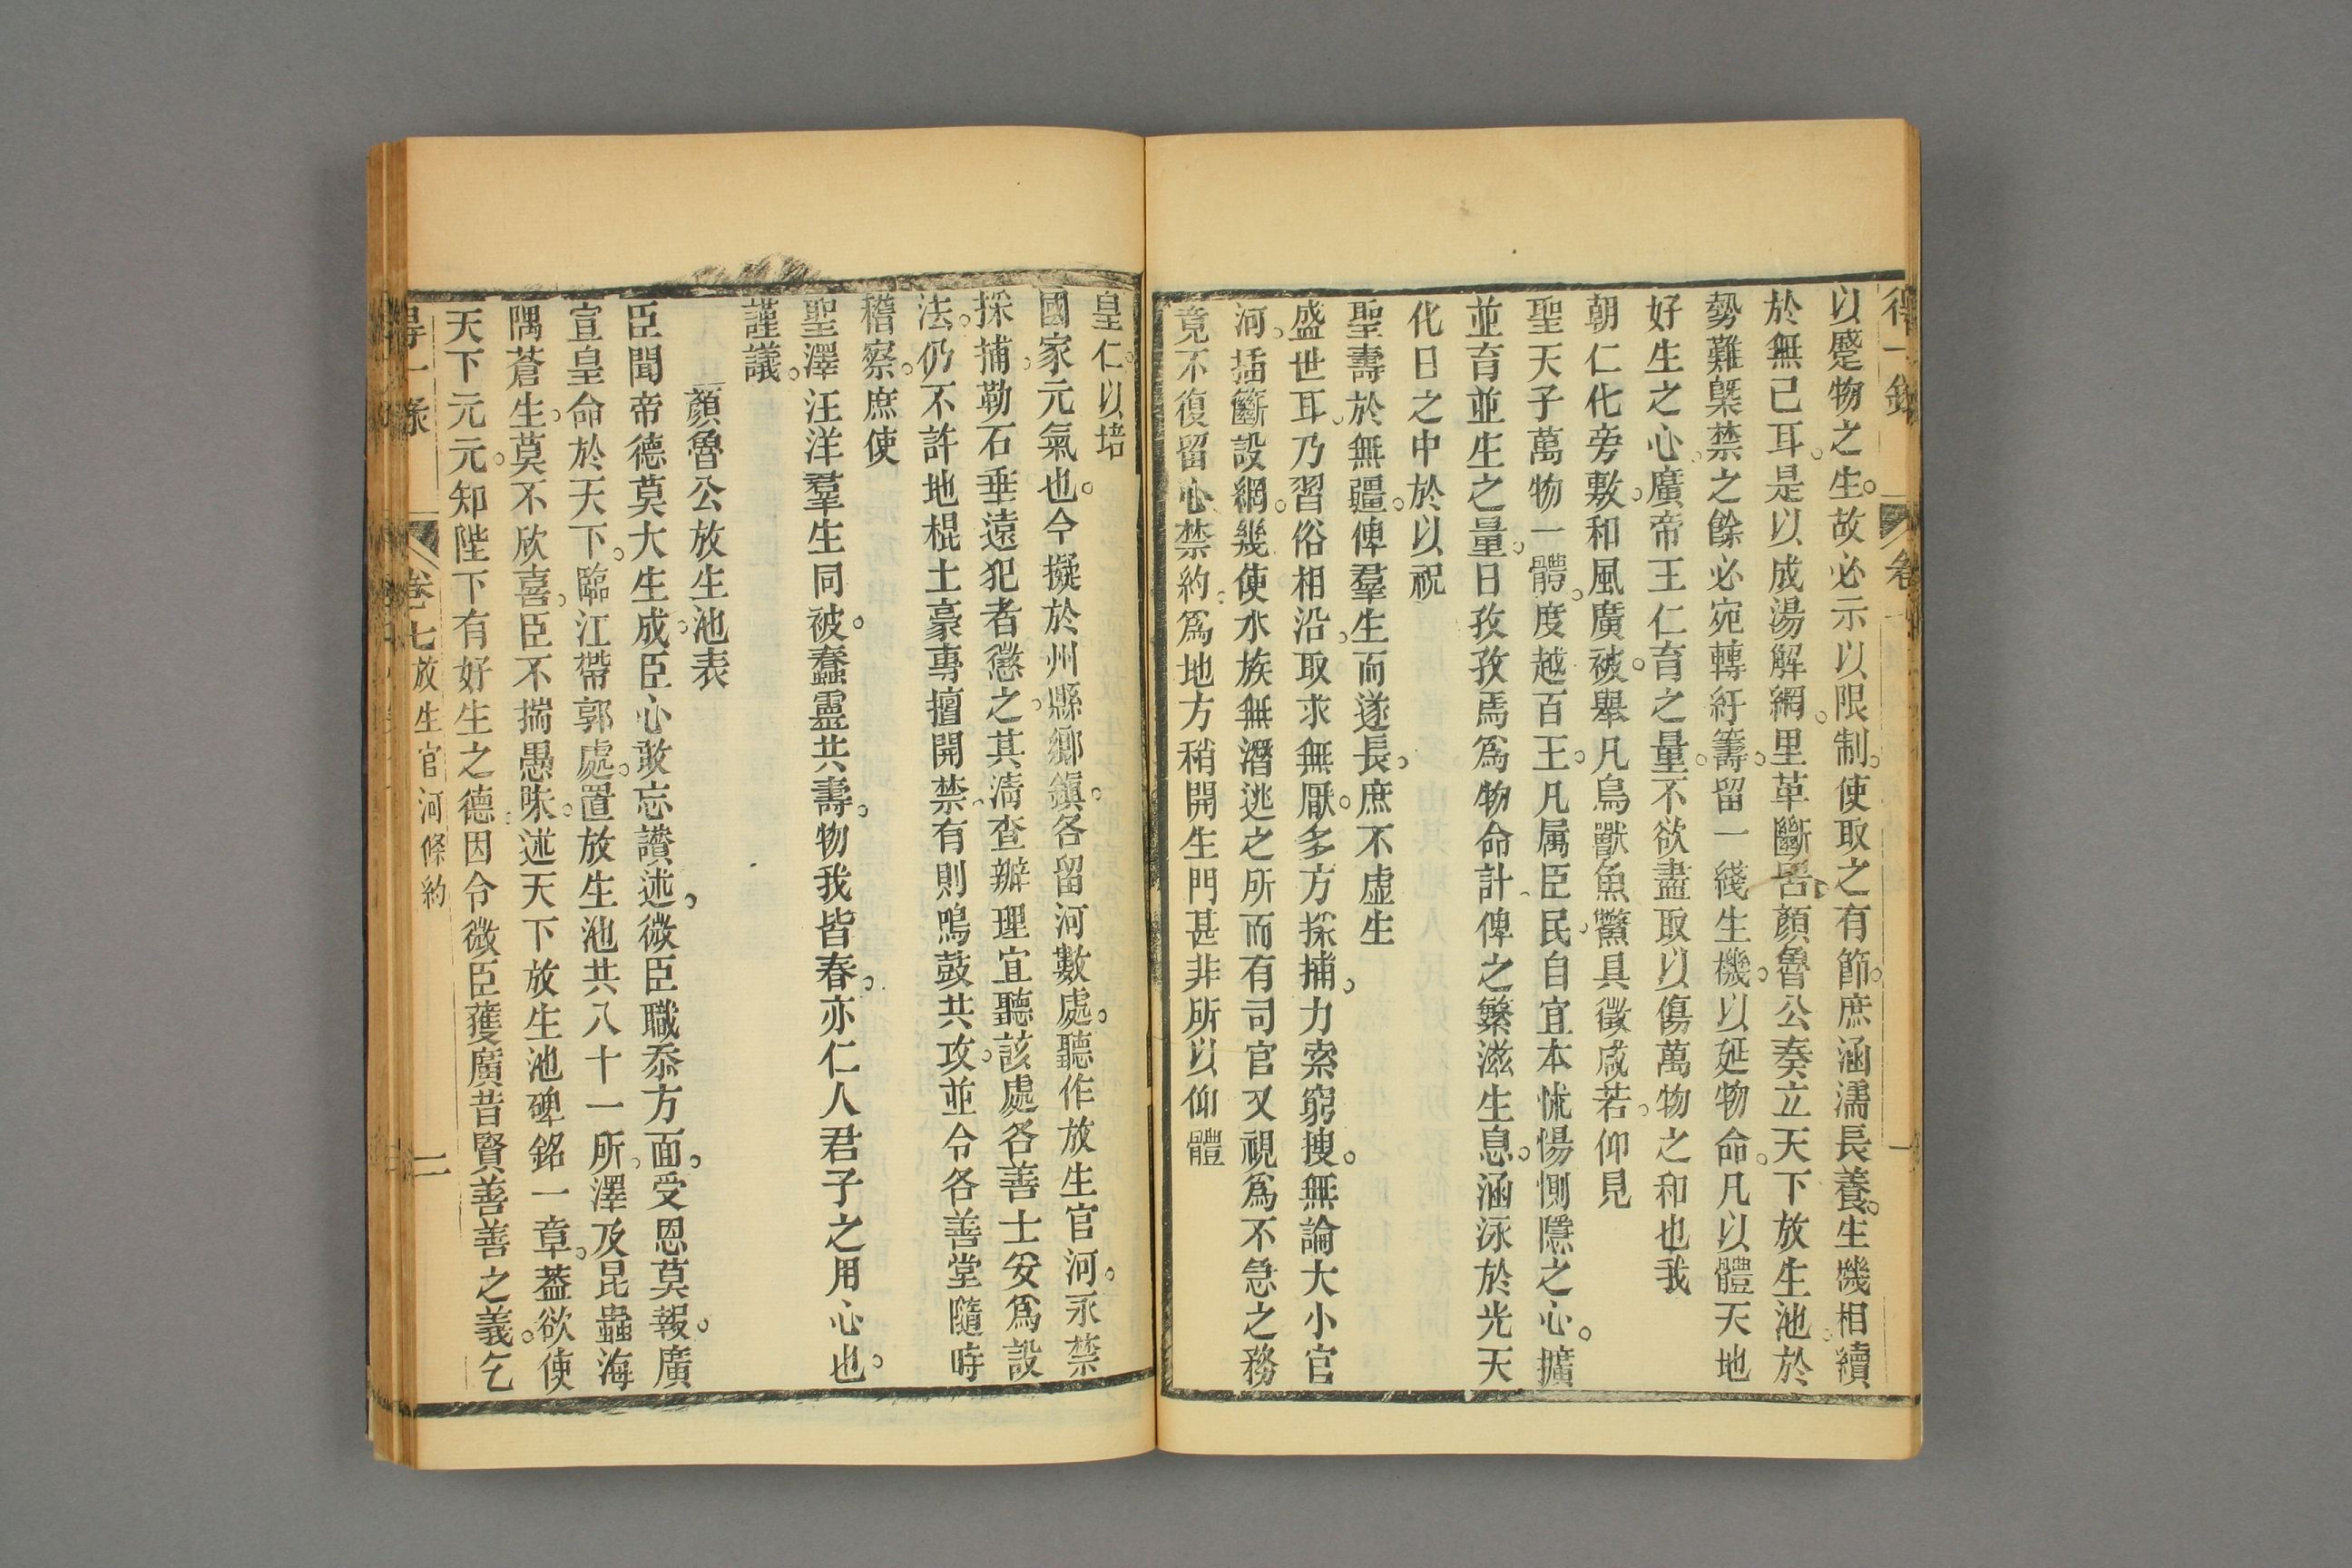 以蹙物之生。故必示以限制。使取之有節。庶涵濡長養。生機相續
於無已耳。是以成湯解網。里革斷罟。顏魯公奏立天下放生池。於
勢難槩禁之餘必宛轉紆籌。留一綫生機。以延物命。凡以體天地
好生之心。廣帝王仁育之量。不欲盡取以傷萬物之和也我
朝仁化旁敷。和風廣被。舉凡鳥獸魚鱉具徵咸若。仰見
聖天子萬物一體。度越百王。凡属臣民。自宜本怵惕惻隱之心。擴
並育並生之量。日孜孜焉爲物命計。俾之繁滋生息。涵泳於光天
化日之中於以祝
聖壽於無疆。俾羣生而遂長。庶不虛生
盛世耳。乃習俗相沿。取求無厭。多方採捕。力索窮搜。無論大小官
河。插籪設網。幾使水族無潛逃之所而有司官又視爲不急之務
竟不復留心禁約。爲地方稍開生門甚非所以仰體
皇仁。以培
國家元氣也。今擬於州縣鄉鎮。各留河數處。聽作放生官河。永禁
採捕。勒石垂遠犯者懲之。其清查辦理宜聽該處各善士妥爲設
法。仍不許地棍土豪專擅開禁。有則鳴鼓共攻。並令各善堂隨時
稽察。庶使
聖澤汪洋羣生同被。蠢靈共壽。物我皆春。亦仁人君子之用心也。
謹議。
顏魯公放生池表
臣聞帝德莫大生成。臣心敢忘讚述。微臣職忝方面。受恩莫報。廣
宣皇命於天下。臨江帶郭處。置放生池共八十一所。澤及昆蟲海
隅蒼生。莫不欣喜。臣不揣愚昧。述天下放生池碑銘一章。葢欲使
天下元元。知陛下有好生之德。因令微臣獲廣昔賢善善之義。乞
得一錄 卷七 放生官河條約 二